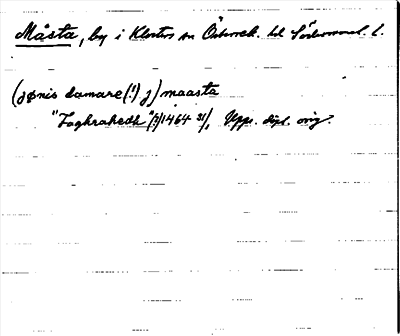 Måsta, by i Klosters sn Österrek. hd Södermanl. l.
(jønis damare (!) j) maasta
"Faghrahedh" (?) 1464 31/, Upps. dipl. orig.